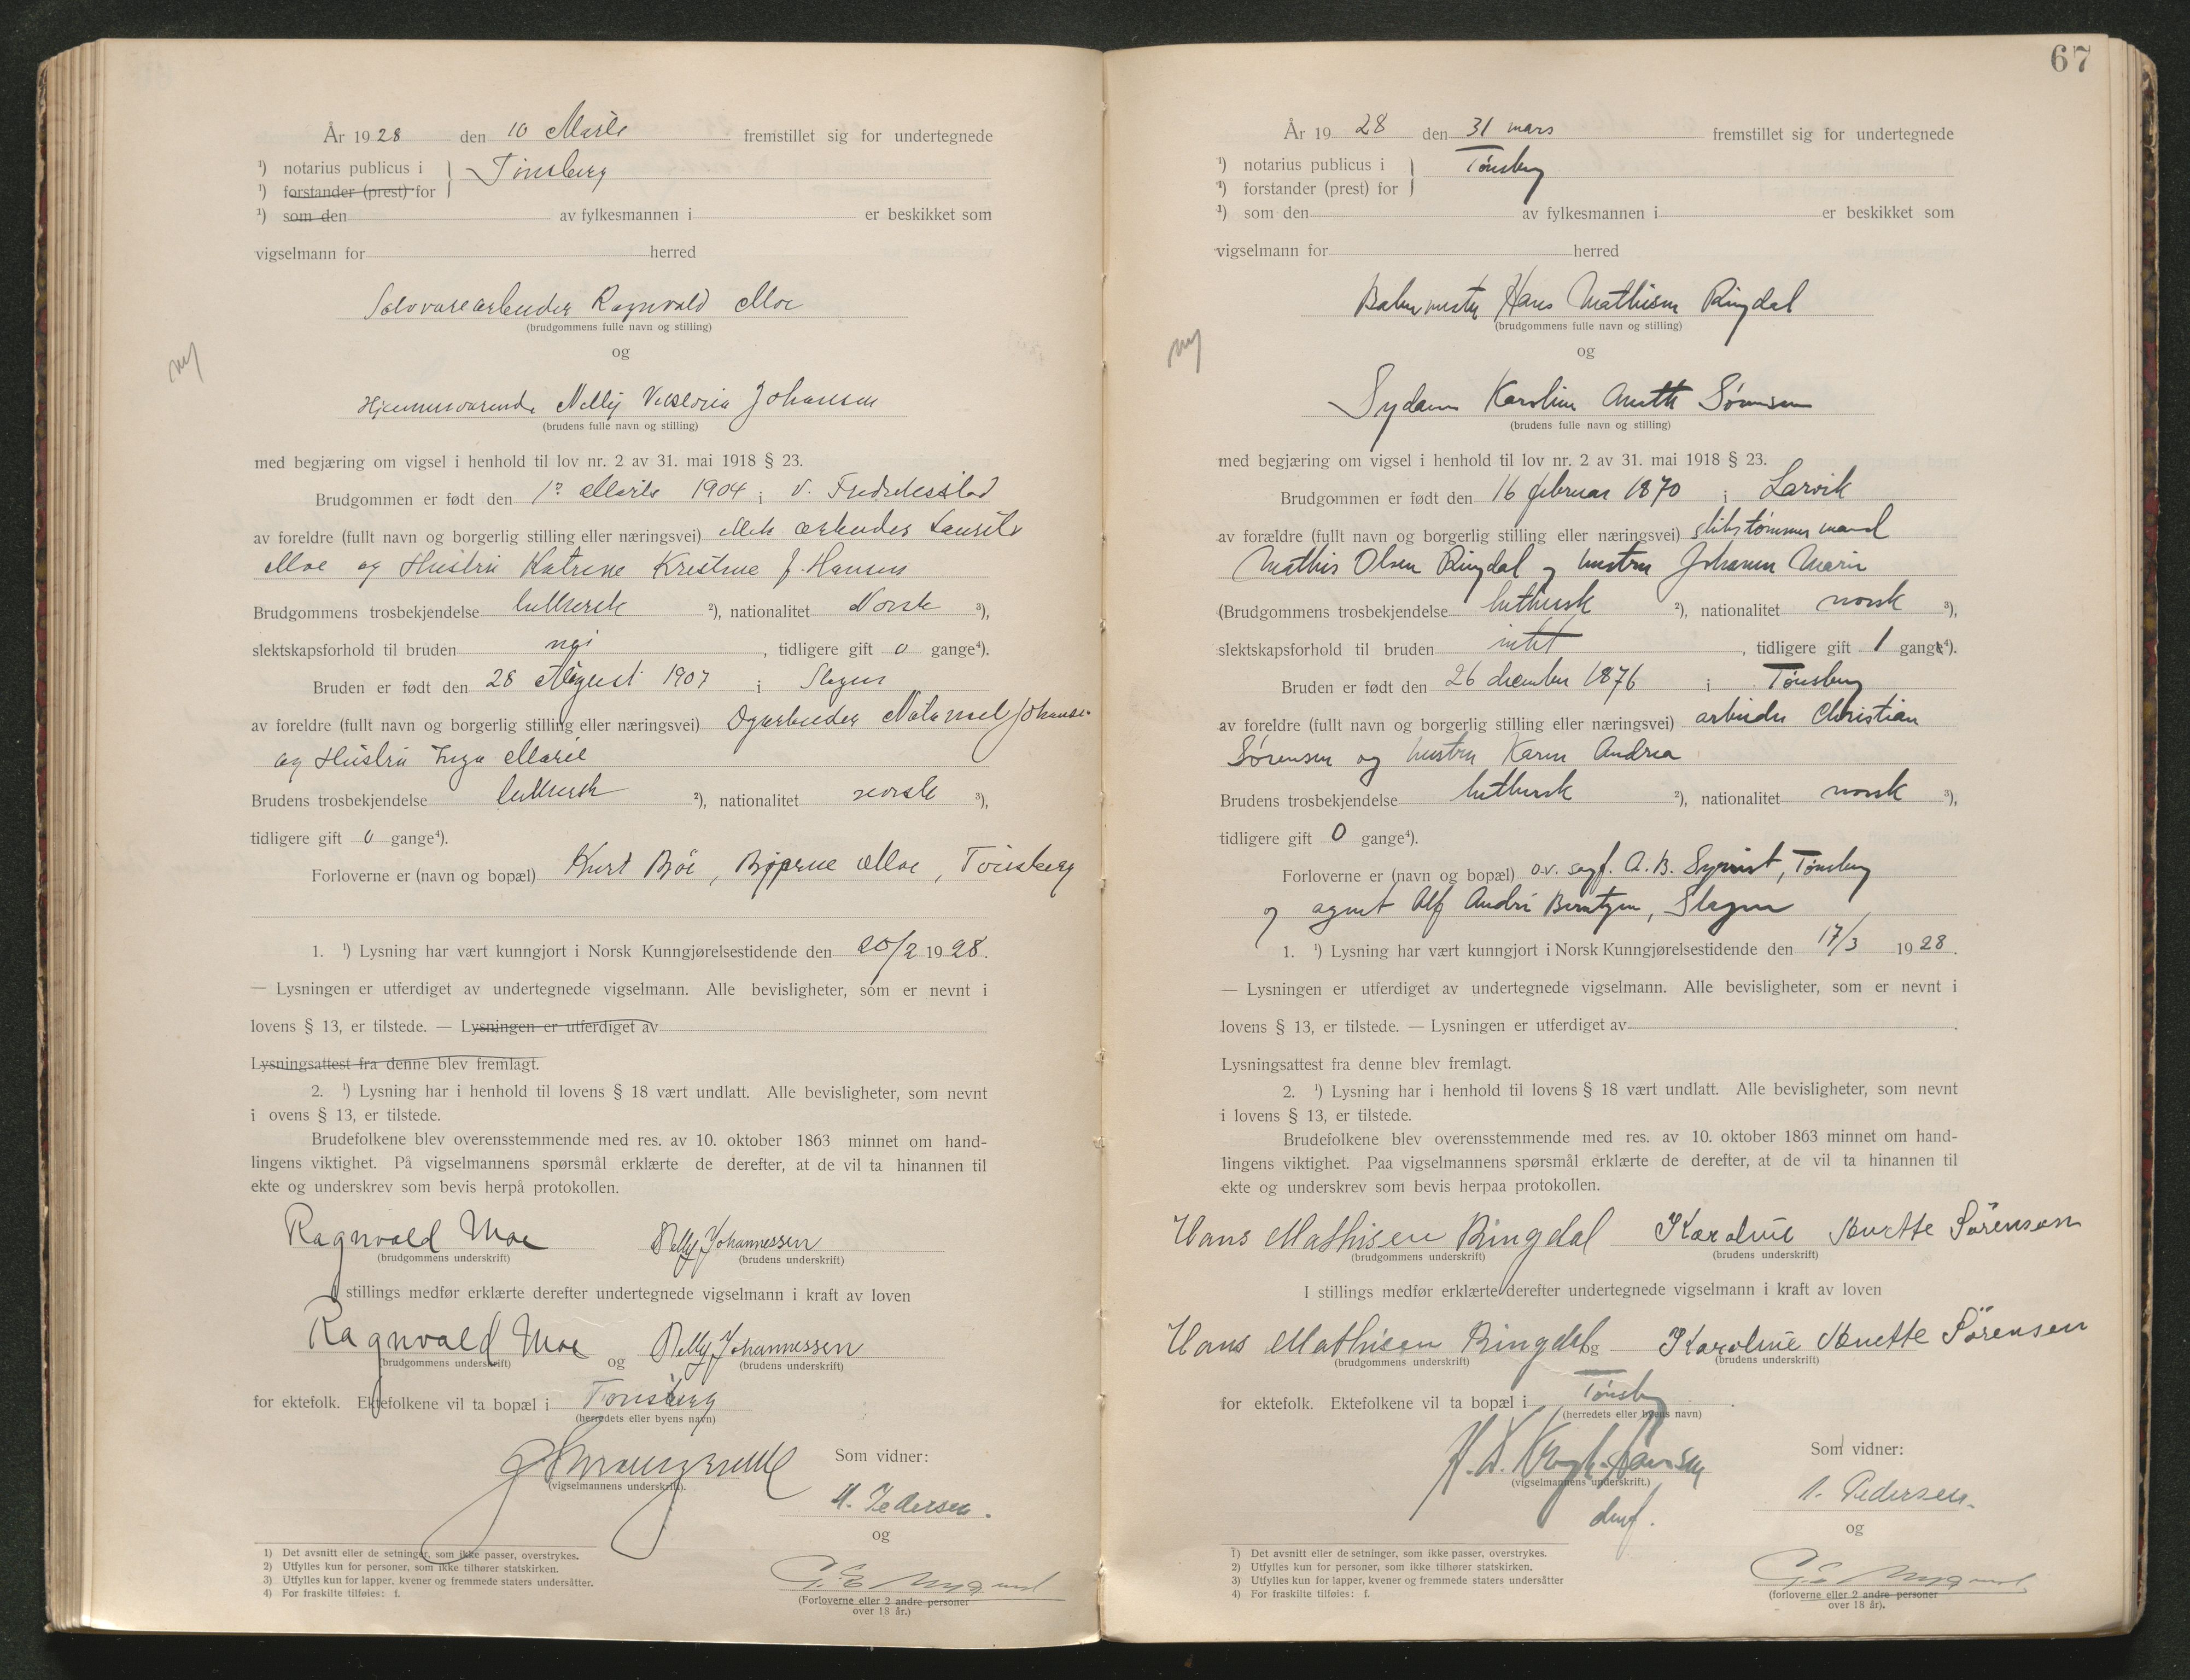 År 1928 den 10 Marts fremstillet sig for undertegnede
¹) notarius publicus i } Tönsberg
¹) forstander (prest) for
¹) som den av fylkesmannen i er beskikket som
vigselmann for herred
Sølvvarearbeider Ragnvald Moe
(brudgommens fulle navn og stilling)
og
Hjemmeværende Nelly Johansen
(brudens fulle navn og stilling)
med begjæring om vigsel i henhold til lov nr. 2 av 31. mai 1918 § 23.
Brudgommen er født den Marts 1904 i v. Fredriksstad
av foreldre (fullt navn og borgerlig stilling eller næringsvei) arbeider Laurits
Moe og Hustru Katrine Kristine f. Hansen
Brudgommens trosbekjendelse luthersk ²), nationalitet Norsk ³),
slektskapsforhold til bruden nei , tidligere gift 0 gange⁴).
Bruden er født den 28 August 1907 i Slagen
av foreldre (fullt navn og borgerlig stilling eller næringsvei) Natanael Johansen
og Hustru Inga Marie
Brudens trosbekjendelse luthersk ²), nationalitet norsk ³),
tidligere gift 0 gange⁴).
Forloverne er (navn og bopæl) Kurt Böe, Bjarne Moe, Tönsberg
1. ¹) Lysning har vært kunngjort i Norsk Kunngjørelsestidende den 20/2 1928.
— Lysningen er utferdiget av undertegnede vigselmann. Alle bevisligheter, som er nevnt i
lovens § 13, er tilstede. — Lysningen er utferdiget av
Lysningsattest fra denne blev fremlagt.
2. ¹) Lysning har i henhold til lovens § 18 vært undlatt. Alle bevisligheter, som nevnt
i ovens § 13, er tilstede.
Brudefolkene blev overensstemmende med res. av 10. oktober 1863 minnet om hand-
lingens viktighet. På vigselmannens spørsmål erklærte de derefter, at de vil ta hinannen til
ekte og underskrev som bevis herpå protokollen.
Ragnvald Moe Nelly Johannessen
(brudgommens underskrift) (brudens underskrift)
I stillings medfør erklærte derefter undertegnede vigselmann i kraft av loven
Ragnvald Moe og Nelly Johannessen
(brudgommens underskrift) (brudens underskrift)
for ektefolk. Ektefolkene vil ta bopæl i Tönsberg
(herredets eller byens navn)
(vigselmannens underskrift).
Som vidner:
Pedersen.
og
(Forloverne eller 2 andre personer
over 18 år.)
1) Det avsnitt eller de setninger, som ikke passer, overstrykes.
2) Utfylles kun for personer, som ikke tilhører statskirken.
3) Utfylles kun for lapper, kvener og fremmede staters undersåtter.
4) For fraskilte tilføies: f.
67
År 1928 den 31 mars fremstillet sig for undertegnede
¹) notarius publicus i } Tønsberg
¹) forstander (prest) for
¹) som den av fylkesmannen i er beskikket som
vigselmann for herred
Hans Mathisen Ringdal
(brudgommens fulle navn og stilling)
og
Sydame Karoline Anette Sørensen
(brudens fulle navn og stilling)
med begjæring om vigsel i henhold til lov nr. 2 av 31. mai 1918 § 23.
Brudgommen er født den 16 februar 1870 i Larvik
av forældre (fullt navn og borgerlig stilling eller næringsvei) skibstømmermand
Mathis Olsen Ringdal og hustru Johanne Marie
(Brudgommens trosbekjendelse luthersk ²), nationalitet norsk ³),
slektskapsforhold til bruden intet , tidligere gift 1 gange⁴).
Bruden er født den 26 december 1876 i Tønsberg
av foreldre (fullt navn og borgerlig stilling eller næringsvei) arbeider Christian
Sørensen og hustru Karen Andrea
Brudens trosbekjendelse luthersk ²), nationalitet norsk ³),
tidligere gift 0 gange⁴).
Forloverne er (navn og bopæl) o.r. sagf. A. B. Syvrist, Tønsberg
og agent Alf André Berntzen, Slagen
1. ¹) Lysning har vært kunngjort i Norsk Kunngjørelsestidende den 17/3 1928.
— Lysningen er utferdiget av undertegnede vigselmann. Alle bevisligheter, som er nevnt i
lovens § 13, er tilstede. — Lysningen er utferdiget av
Lysningsattest fra denne blev fremlagt.
2. ¹) Lysning har i henhold til lovens § 18 vært undlatt. Alle bevisligheter, som nevnt
i lovens § 13, er tilstede.
Brudefolkene blev overensstemmende med res. av 10. oktober 1863 minnet om hand-
lingens viktighet. Paa vigselmannens spørsmål erklærte de derefter, at de vil ta hinannen til
ekte og underskrev som bevis herpaa protokollen.
Hans Mathisen Ringdal Karoline Anette Sörensen
(brudgommens underskrift) (brudens underskrift)
I stillings medfør erklærte derefter undertegnede vigselmann i kraft av loven
Hans Mathisen Ringdal og Karoline Anette Sörensen
(brudgommens underskrift) (brudens underskrift)
for ektefolk. Ektefolkene vil ta bopæl i Tønsberg
(herredets eller byens navn)
(vigselmannens underskrift.)
Som vidner:
Pedersen.
og
(forloverne eller 2 andre personer
over 18 år).
1) Det avsnitt eller de setninger, som ikke passer, overstrykes.
2) Utfylles kun for personer, som ikke tilhører statskirken.
3) Utfylles kun for lapper, kvener og fremmede staters undersåtter
4) For fraskilte tilføies: f.